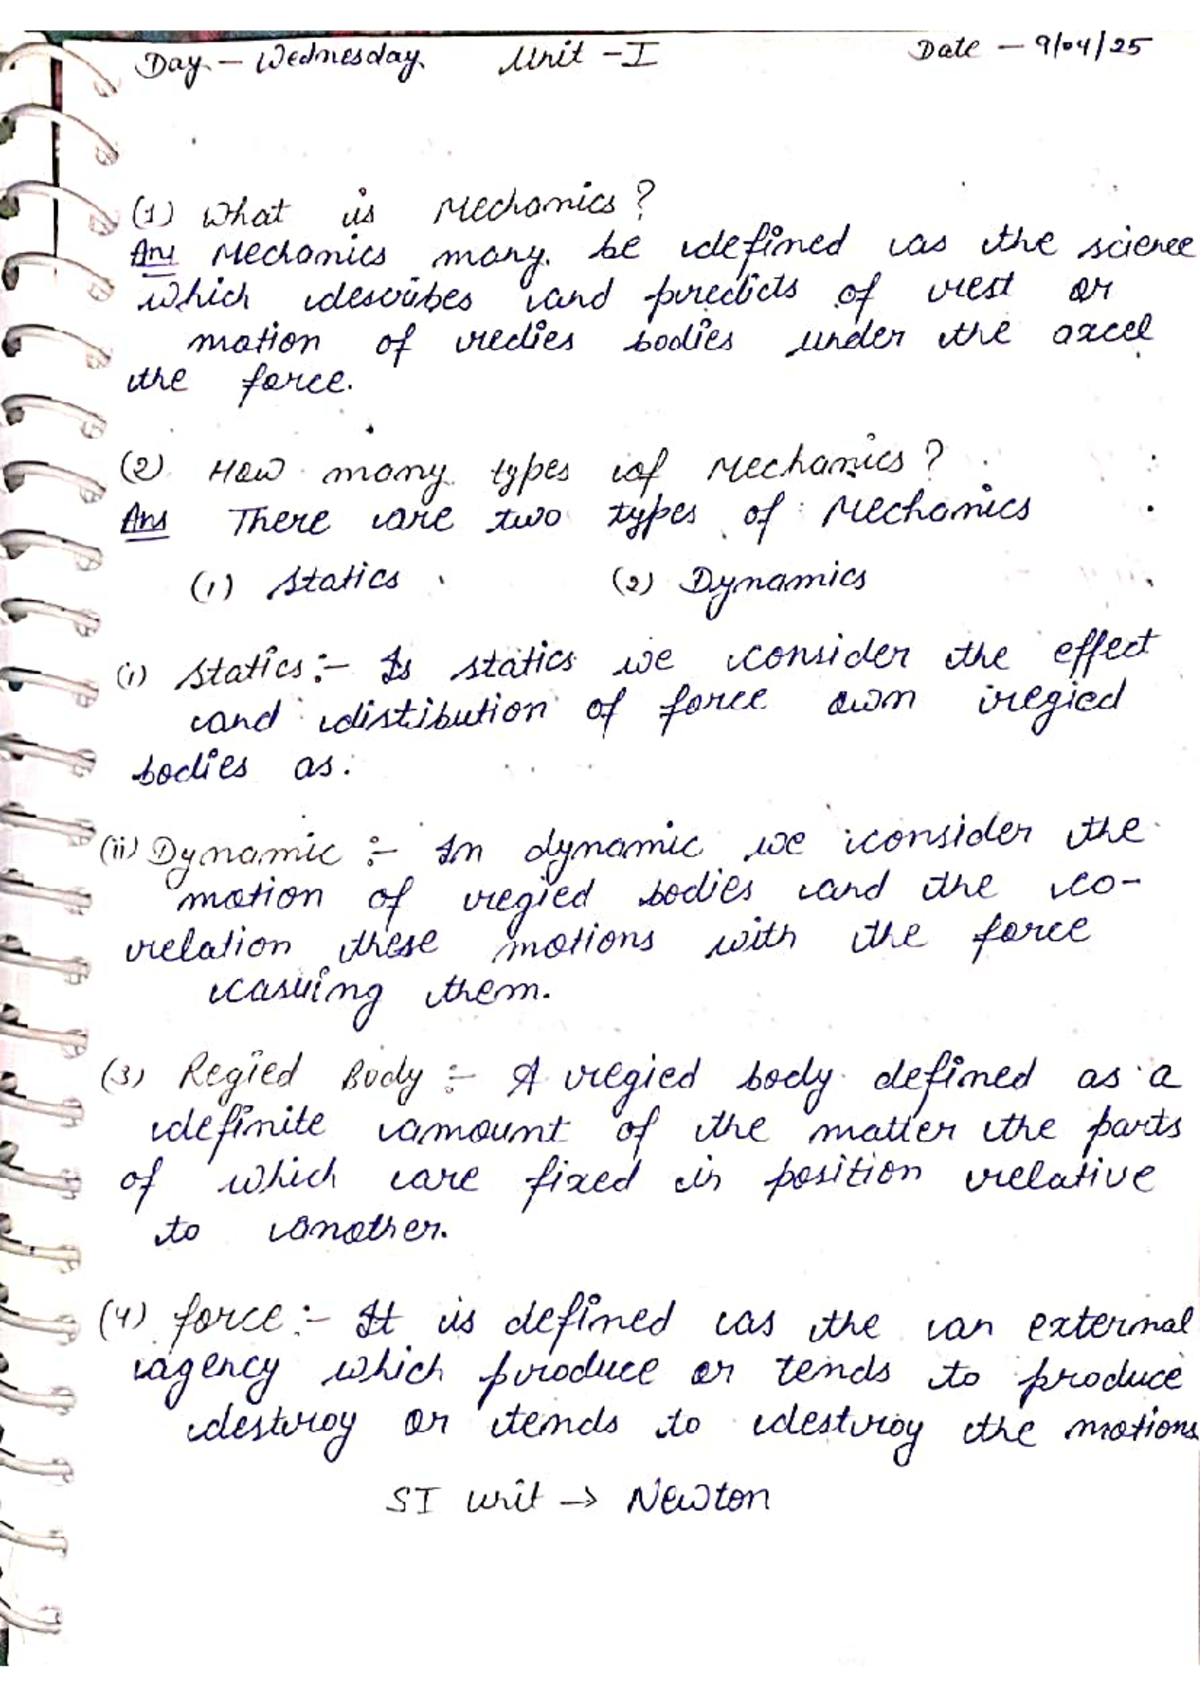 Day - Wednesday Unit - I Date - 9/04/25
(1) What is Mechanics?
Ans Mechanics many be defined as the science
which describes and predicts of rest or
motion of redies bodies under the axcel
the force.
(2) How many types of Mechanics?
Ans There are two types of Mechanics
(1) Statics (2) Dynamics
(i) Statics:- Is statics we consider the effect
and distibution of force own regied
bodies as.
(ii) Dynamic :- In dynamic we consider the
motion of regied bodies and the co-
relation these motions with the force
casuing them.
(3) Regied Body :- A regied body defined as a
definite amount of the matter the parts
of which are fixed in position relative
to another.
(4) force :- It is defined as the an external
agency which produce or tends to produce
destroy or tends to destroy the motions
SI unit → Newton